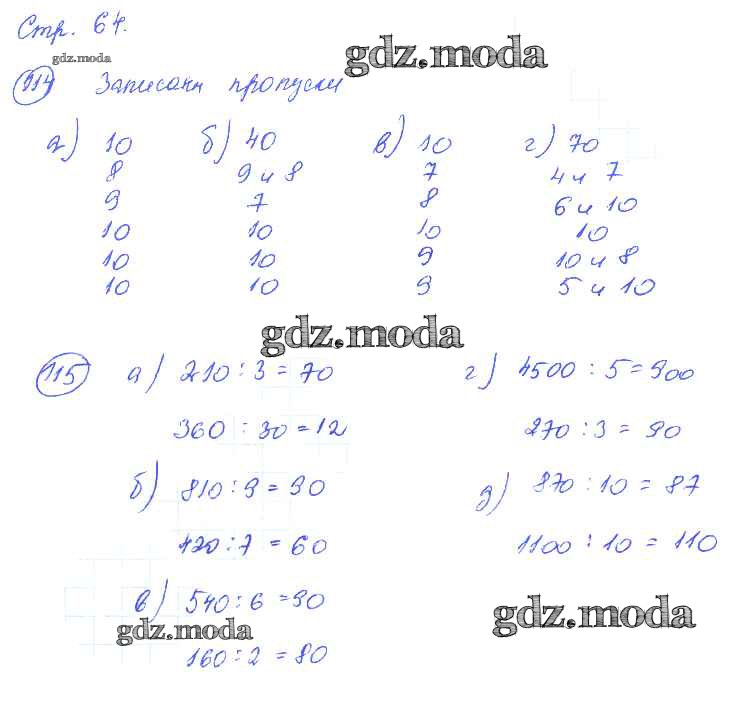 Стр. 64.
gdz.moda
gdz.moda
114 Записаны пропуски
а) 10 б) 40 в) 10 г) 70
8 9 и 8 7 4 и 7
9 7 8 6 и 10
10 10 10 10
10 10 9 10 и 8
10 10 9 5 и 10
gdz.moda
115 а) 210 : 3 = 70 г) 4500 : 5 = 900
360 : 30 = 12 270 : 3 = 90
б) 810 : 9 = 90 д) 870 : 10 = 87
420 : 7 = 60 1100 : 10 = 110
в) 540 : 6 = 90
gdz.moda
gdz.moda
160 : 2 = 80